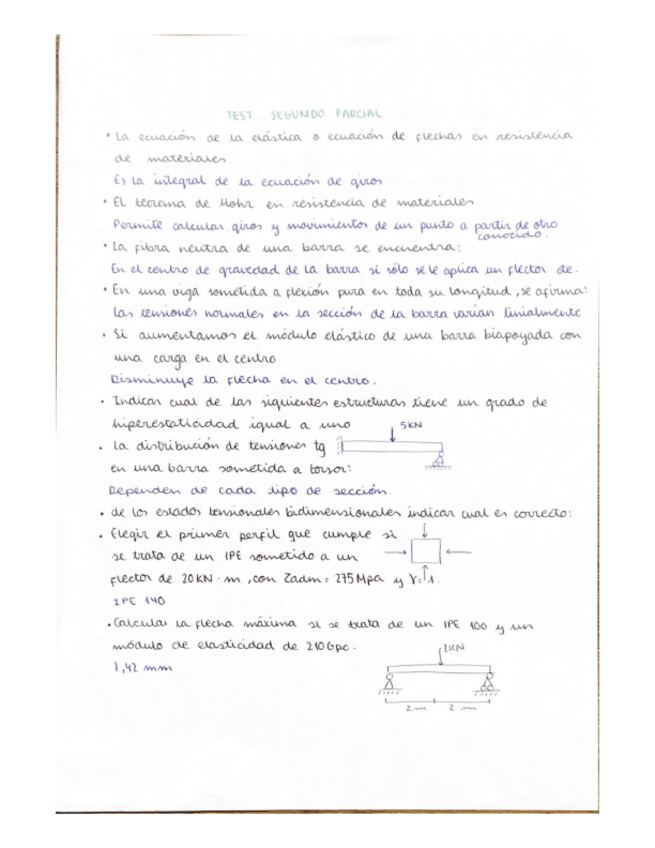 TEST SEGUNDO PARCIAL
• La ecuación de la elástica o ecuación de flechas en resistencia
de materiales
Es la integral de la ecuación de giros
• El teorema de Mohr en resistencia de materiales
Permite calcular giros y movimientos de un punto a partir de otro
conocido.
• La fibra neutra de una barra se encuentra:
En el centro de gravedad de la barra si sólo se le aplica un flector cte.
• En una viga sometida a flexión pura en toda su longitud, se afirma:
Las tensiones normales en la sección de la barra varían linialmente
• Si aumentamos el módulo elástico de una barra biapoyada con
una carga en el centro
Disminuye la flecha en el centro.
• Indicar cual de las siguientes estructuras tiene un grado de
hiperestaticidad igual a uno
5KN
• La distribución de tensiones tg
en una barra sometida a torsor:
Dependen de cada tipo de sección.
• de los estados tensionales bidimensionales indicar cual es correcto:
• Elegir el primer perfil que cumple si
se trata de un IPE sometido a un
flector de 20KN·m, con Zadm = 275 Mpa y γ=1.
IPE 140
• Calcular la flecha máxima si se trata de un IPE 100 y un
módulo de elasticidad de 210 Gpc.
2KN
1,42 mm
2 m 2 m